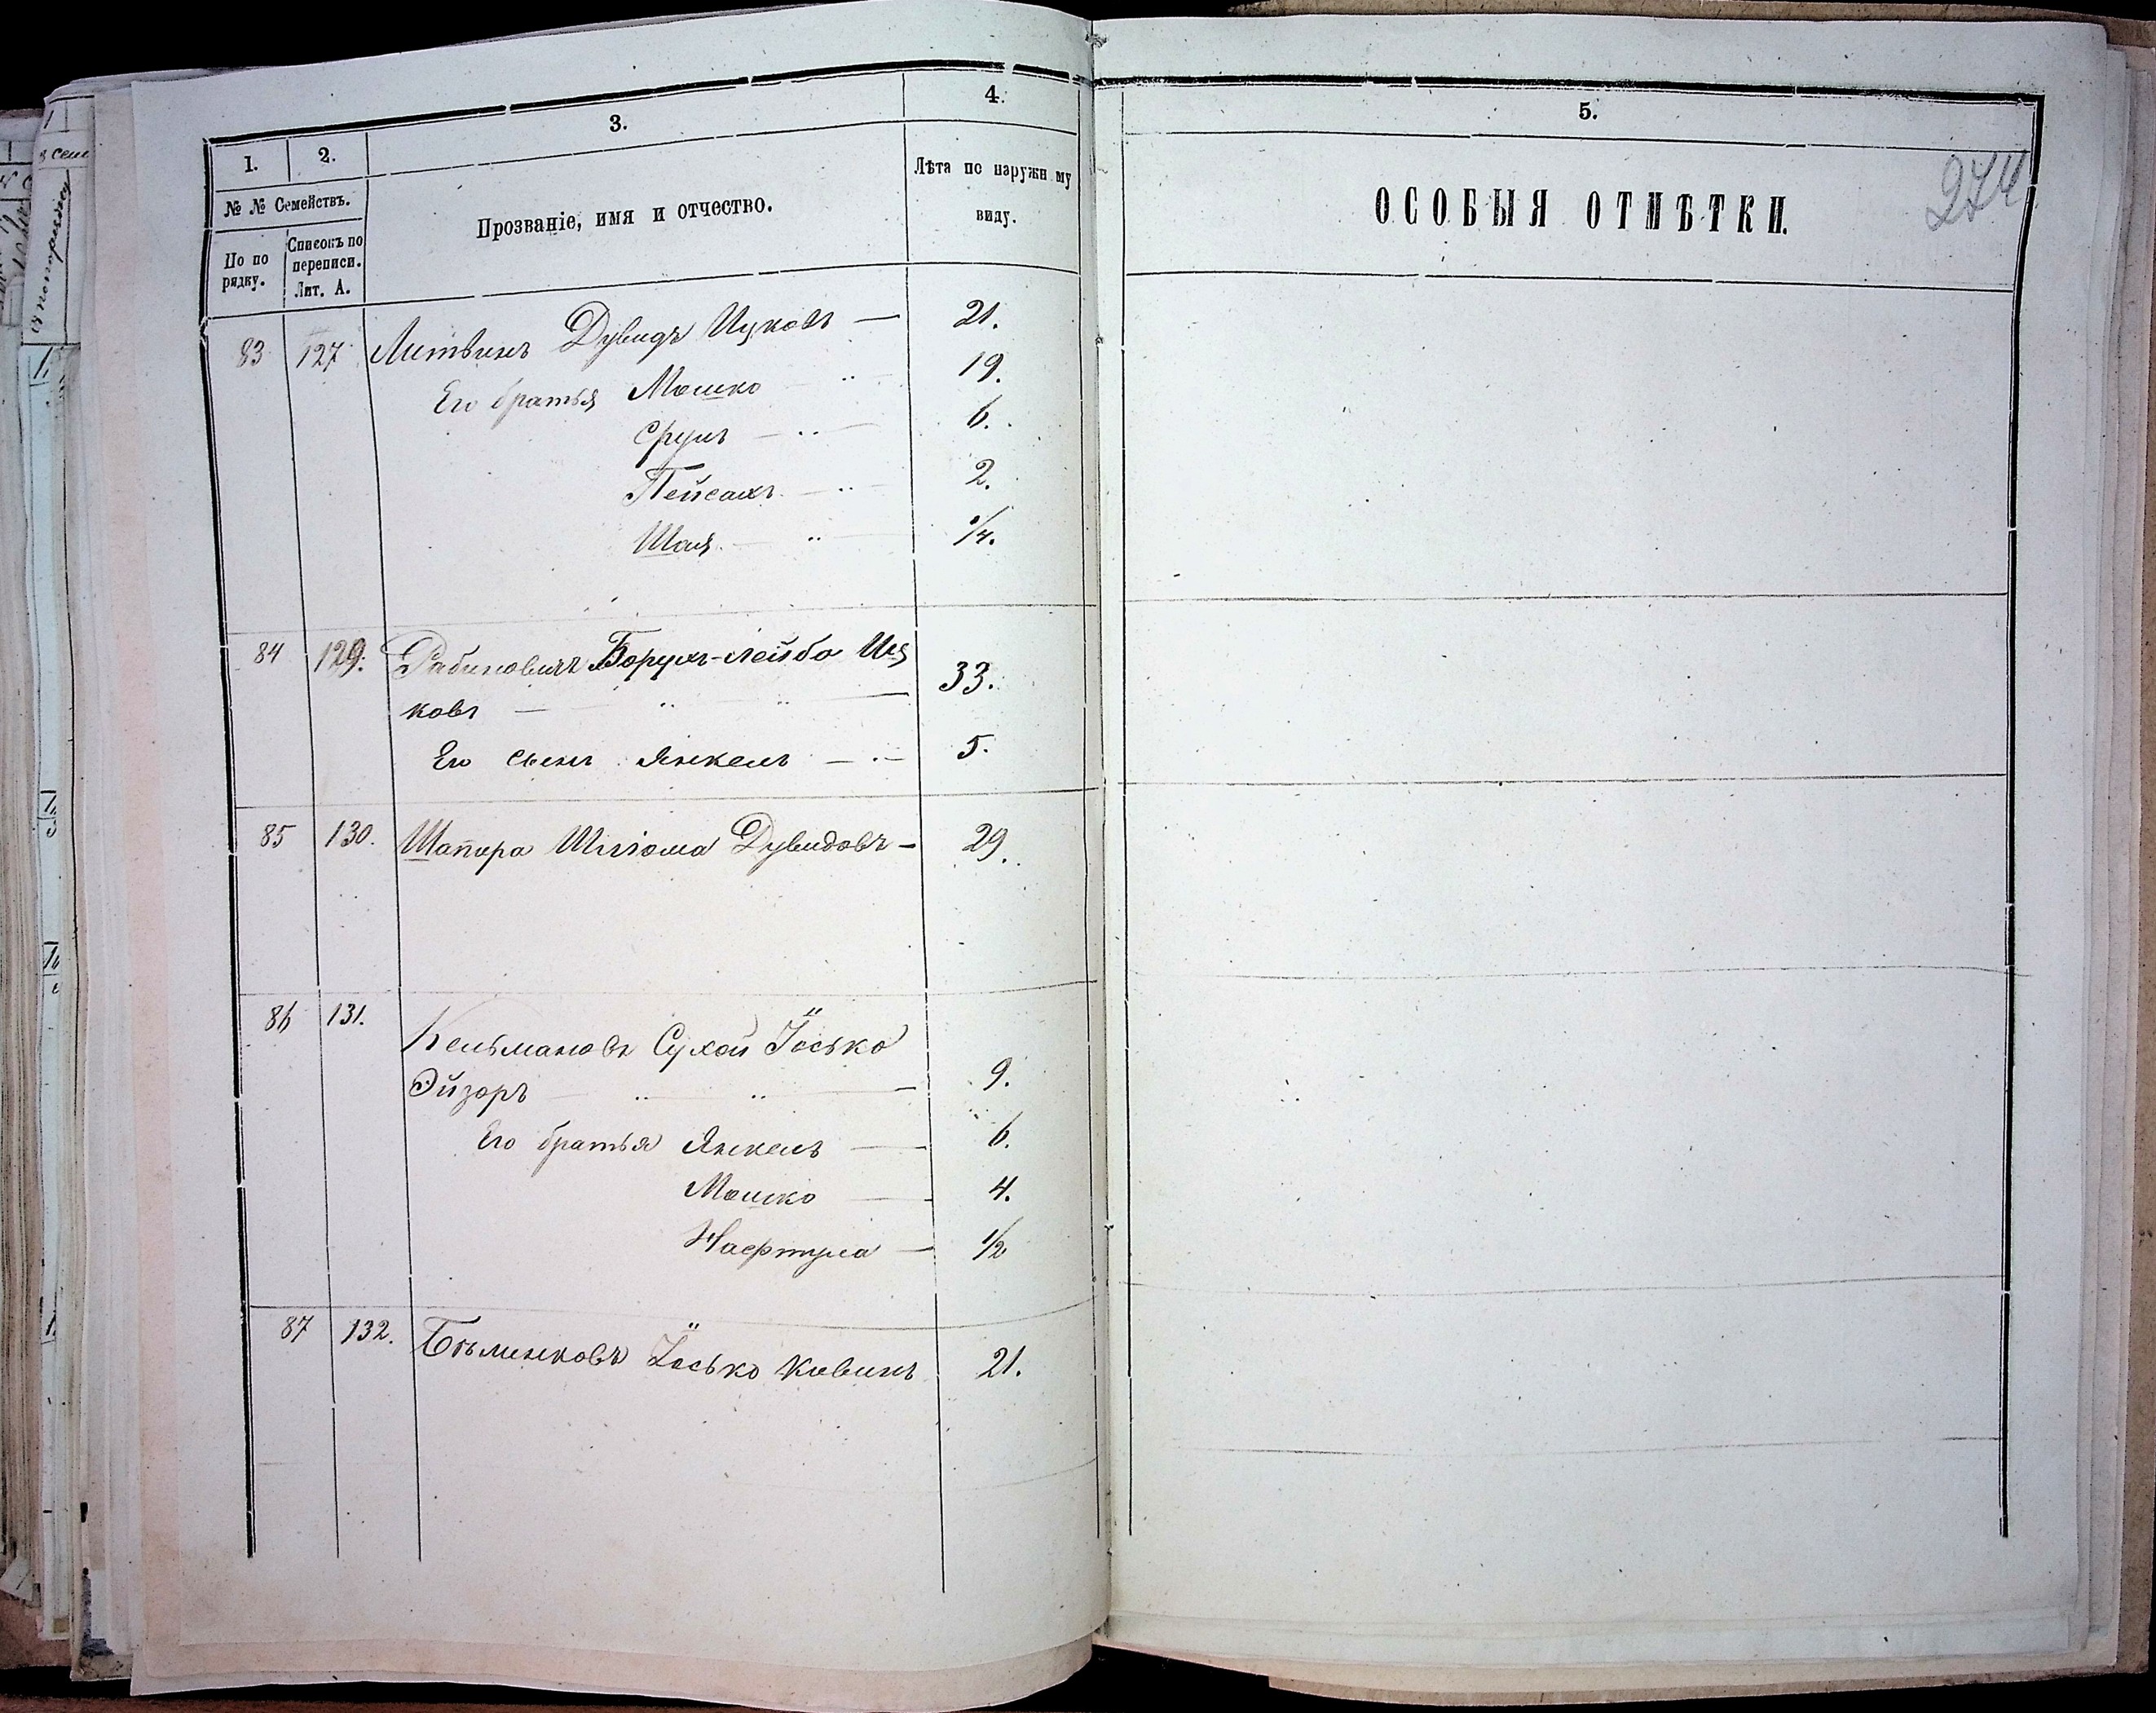 1.
2.
3.
4.
5.
№ № Семействъ.
По по
рядку.
Списокъ по
переписи.
Лит. А.
Прозваніе, имя и отчество.
Лѣта по наружн му
виду.
ОСОБЫЯ ОТМѢТКИ.
274
83 127 Литвинъ Дувидъ Ицковъ — 21.
Его братья Мошко — „ — 19.
Сруль — „ — 6.
Пейсахъ — „ — 2.
Шая — „ — 1/4.
84 129. Рабиновичъ Борухъ-Лейба Иц
ковъ — „ „ — 33.
Его сынъ Янкель — „ — 5.
85 130. Шапира Шліома Дувидовъ — 29.
86 131. Кельмановъ Сухой Іосько
Эйзоръ — „ — „ — 9.
Его братья Янкель — 6.
Мошко — 4.
Нафтула — 1/2
87 132. Іосько Кивинъ 21.